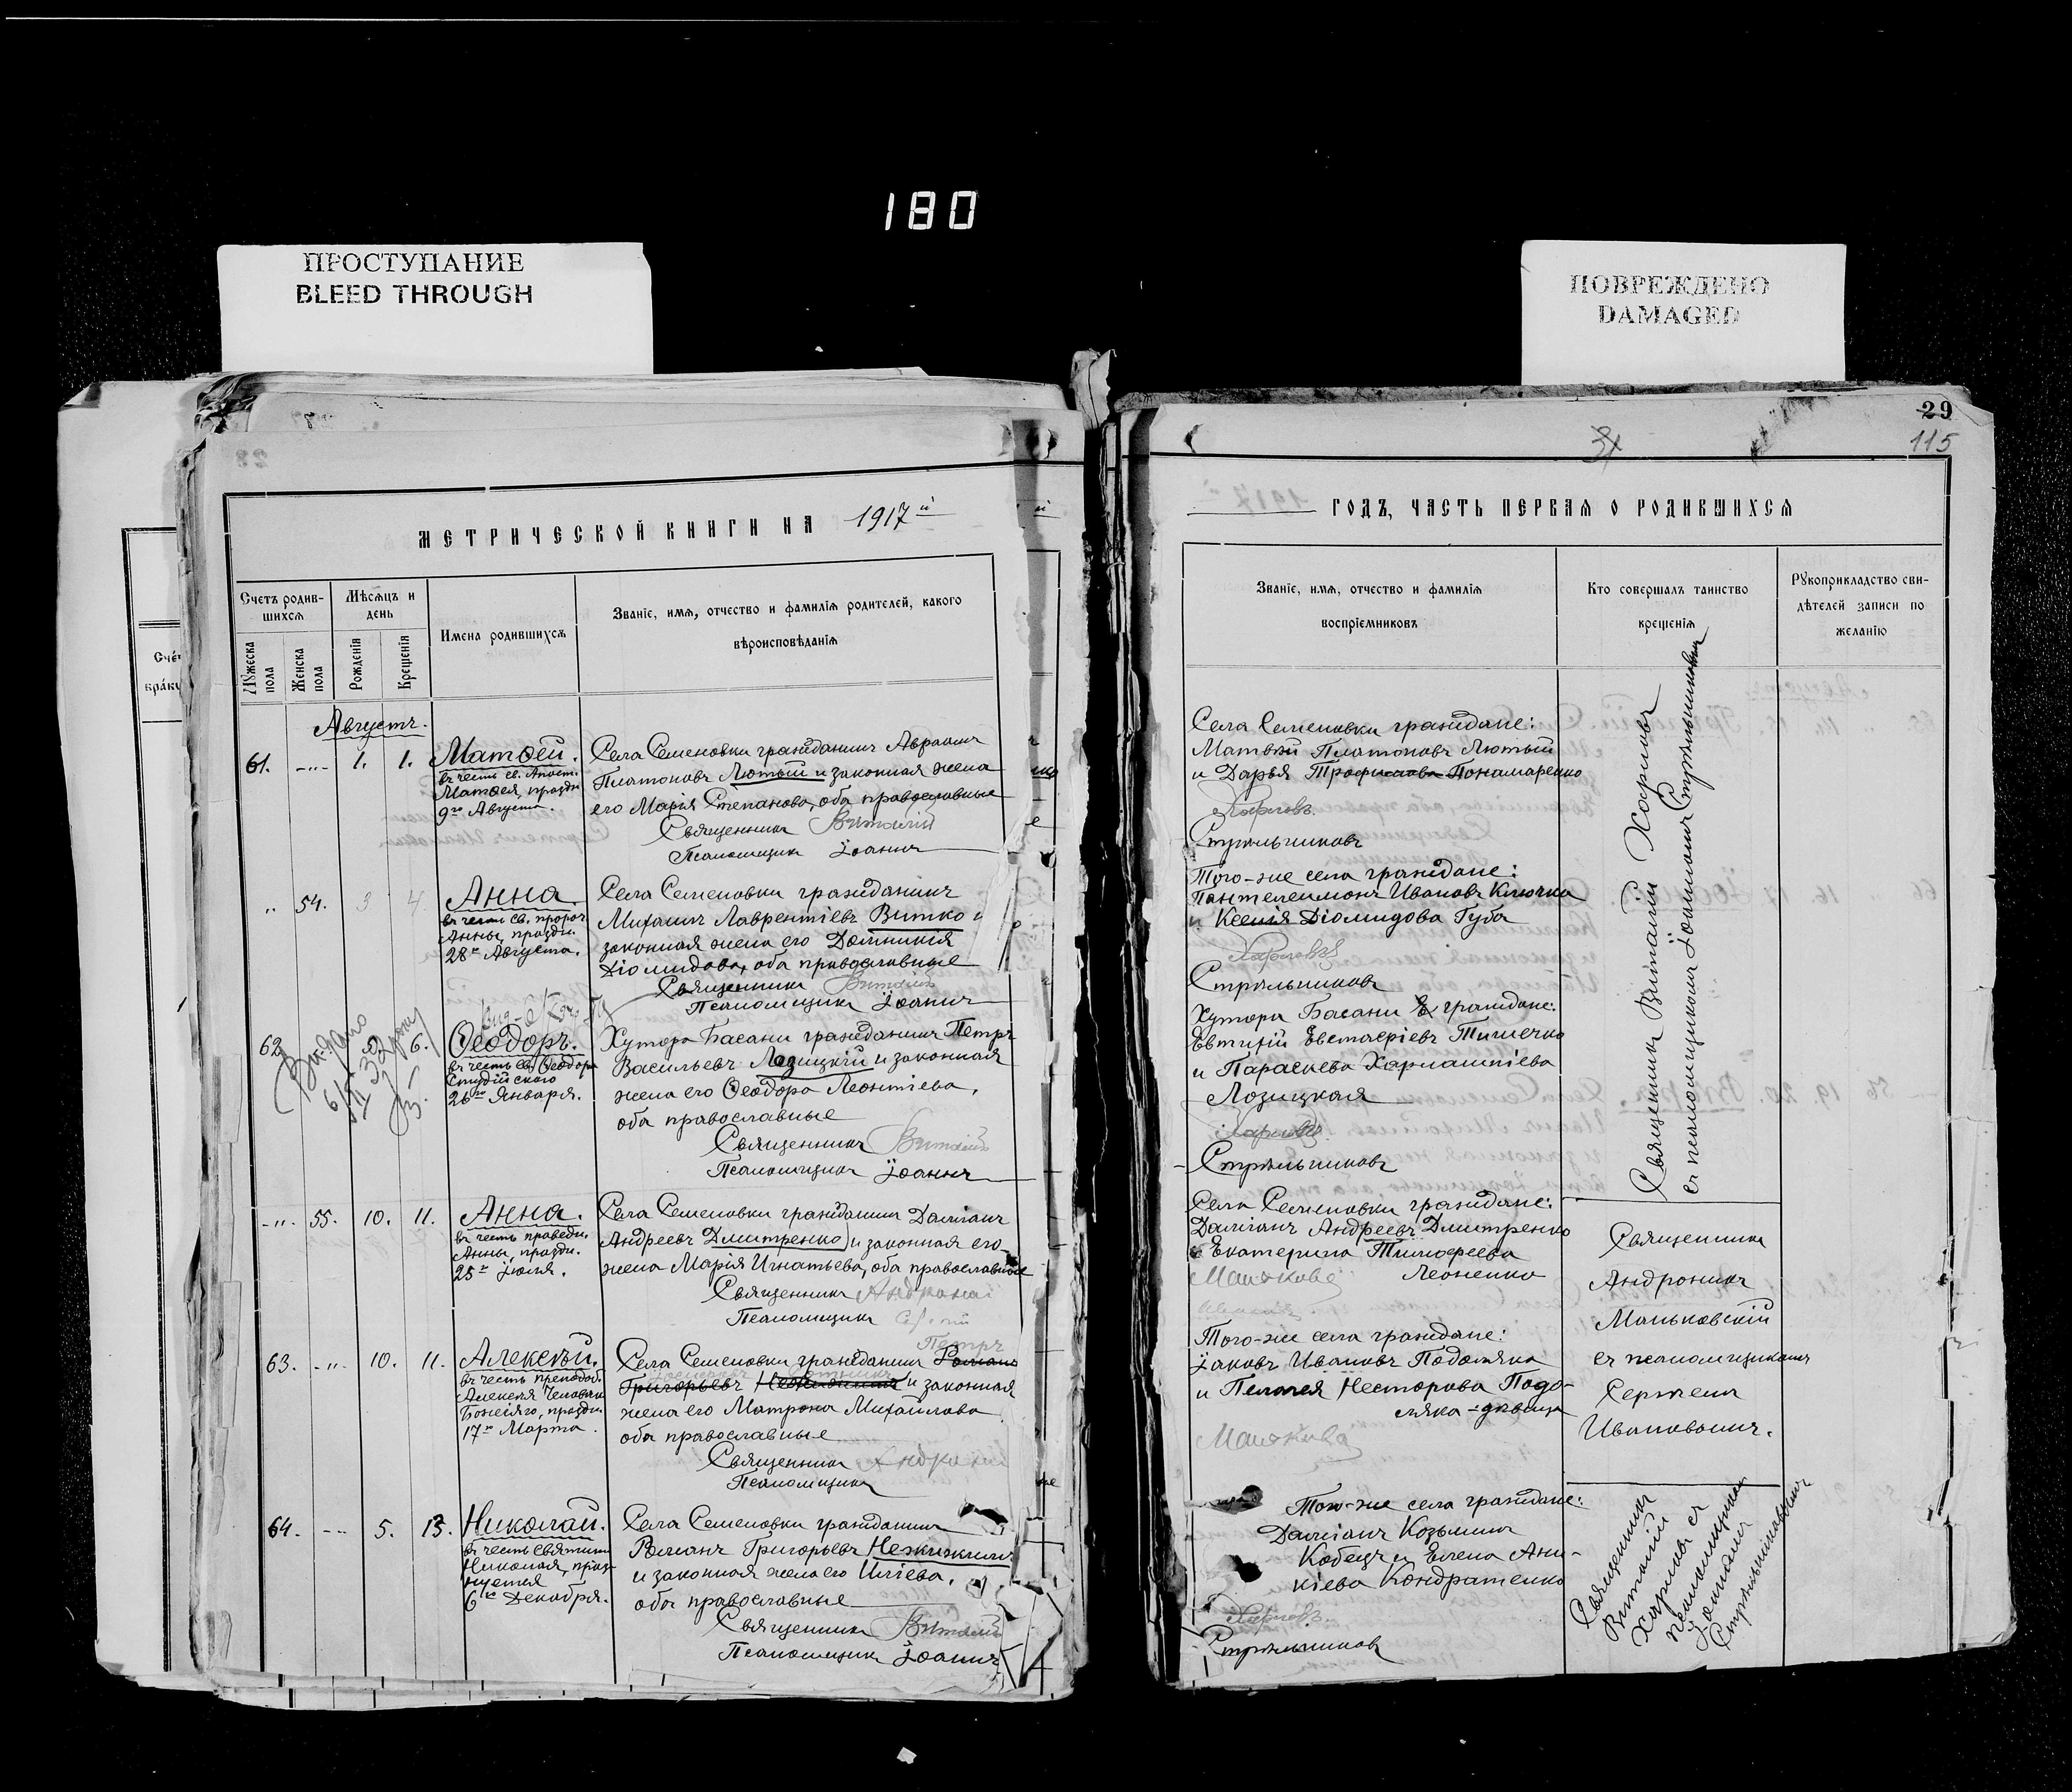 180
ПРОСТУПАНИЕ
BLEED THROUGH
ПОВРЕЖДЕНО
DAMAGED
29
115
МЕТРИЧЕСКОЙ КНИГИ НА 1917й
Счетъ родив-
шихся
Мѣсяцъ и
день
Мужеска
пола
Женска
пола
Рожденія
Крещенія
Имена родившихся
Званіе, имя, отчество и фамилія родителей, какого
вѣроисповѣданія
Августъ.
61. 1. 1.
Матѳей.
въ честь св. Апост.
Матѳея, праздн.
9го Августа.
Села Семеновки гражданинъ Авраамъ
Платоновъ Лютый и законная жена
его Марія Степанова, оба православные
Священникъ Виталій
Псаломщикъ Іоаннъ
54. 3 4
Анна.
въ честь св. пророч.
Анны, праздн.
28го Августа.
Села Семеновки гражданинъ
Михаилъ Лаврентіевъ Витко и
законная жена его Домникія
Діомидова, оба православные
Священникъ Виталій
Псаломщикъ Іоаннъ
62. 6.
Ѳеодоръ.
въ честь св. Ѳеодора
Студійскаго
26го Января.
Хутора Басани гражданинъ Петръ
Васильевъ Лозицкій и законная
жена его Ѳеодора Леонтіева,
оба православные
Священникъ Виталій
Псаломщикъ Іоаннъ
55. 10. 11.
Анна.
въ честь праведн.
Анны, праздн.
25го Іюля.
Села Семеновки гражданинъ Даміанъ
Андреевъ Дмитренко и законная его
жена Марія Игнатьева, оба православные
Священникъ
Псаломщикъ
63. 10. 11.
Алексѣй.
въ честь преподоб.
Алексѣя Человѣка
Божіяго, праздн.
17го Марта.
Петръ
Села Семеновки гражданинъ Романъ
Григорьевъ и законная
жена его Матрона Михайлова
оба православные
Священникъ
Псаломщикъ
64. 5. 13.
Николай.
въ честь Святителя
Николая, праз-
нуется
6го Декабря.
Села Семеновки гражданинъ
Романъ Григорьевъ Нежижимъ
и законная жена его Иліева,
оба православные
Священникъ Виталій
Псаломщикъ Іоаннъ
ГОДЪ, ЧАСТЬ ПЕРВАЯ О РОДИВШИХСЯ
Званіе, имя, отчество и фамилія
воспріемниковъ
Кто совершалъ таинство
крещенія
Рукоприкладство сви-
дѣтелей записи по
желанію
Села Семеновки граждане:
Матвѣй Платоновъ Лютый
и Дарья Трофимова Понамаренко
Харловъ
Стрѣльниковъ
Того-же села граждане:
Пантелеимонъ Ивановъ Ключка
и Ксенія Діомидова Губа
Харловъ
Стрѣльниковъ
Хутора Басани граждане:
Евтихій Евстафіевъ Тимечко
и Параскева Харлампіева
Лозицкая
Харловъ
Стрѣльниковъ
Священникъ Виталій Харловъ
съ псаломщикомъ Іоанномъ Стрѣльниковымъ
Села Семеновки граждане:
Даміанъ Андреевъ Дмитренко
и Екатерина Тимофеева
Леоненко
Того-же села граждане:
Іаковъ Ивановъ Подоляка
и Пелагея Несторова Подо-
ляка - дѣвица
Священникъ
Андроникъ
Маньковскій
съ псаломщикомъ
Сергѣемъ
Ивановымъ.
Того-же села граждане:
Даміанъ Козьминъ
Кобецъ и Елена Ани-
кіева Кондратенко
Харловъ.
Стрѣльниковъ
Священникъ
Виталій
Харловъ съ
псаломщикомъ
Іоанномъ
Стрѣльниковымъ